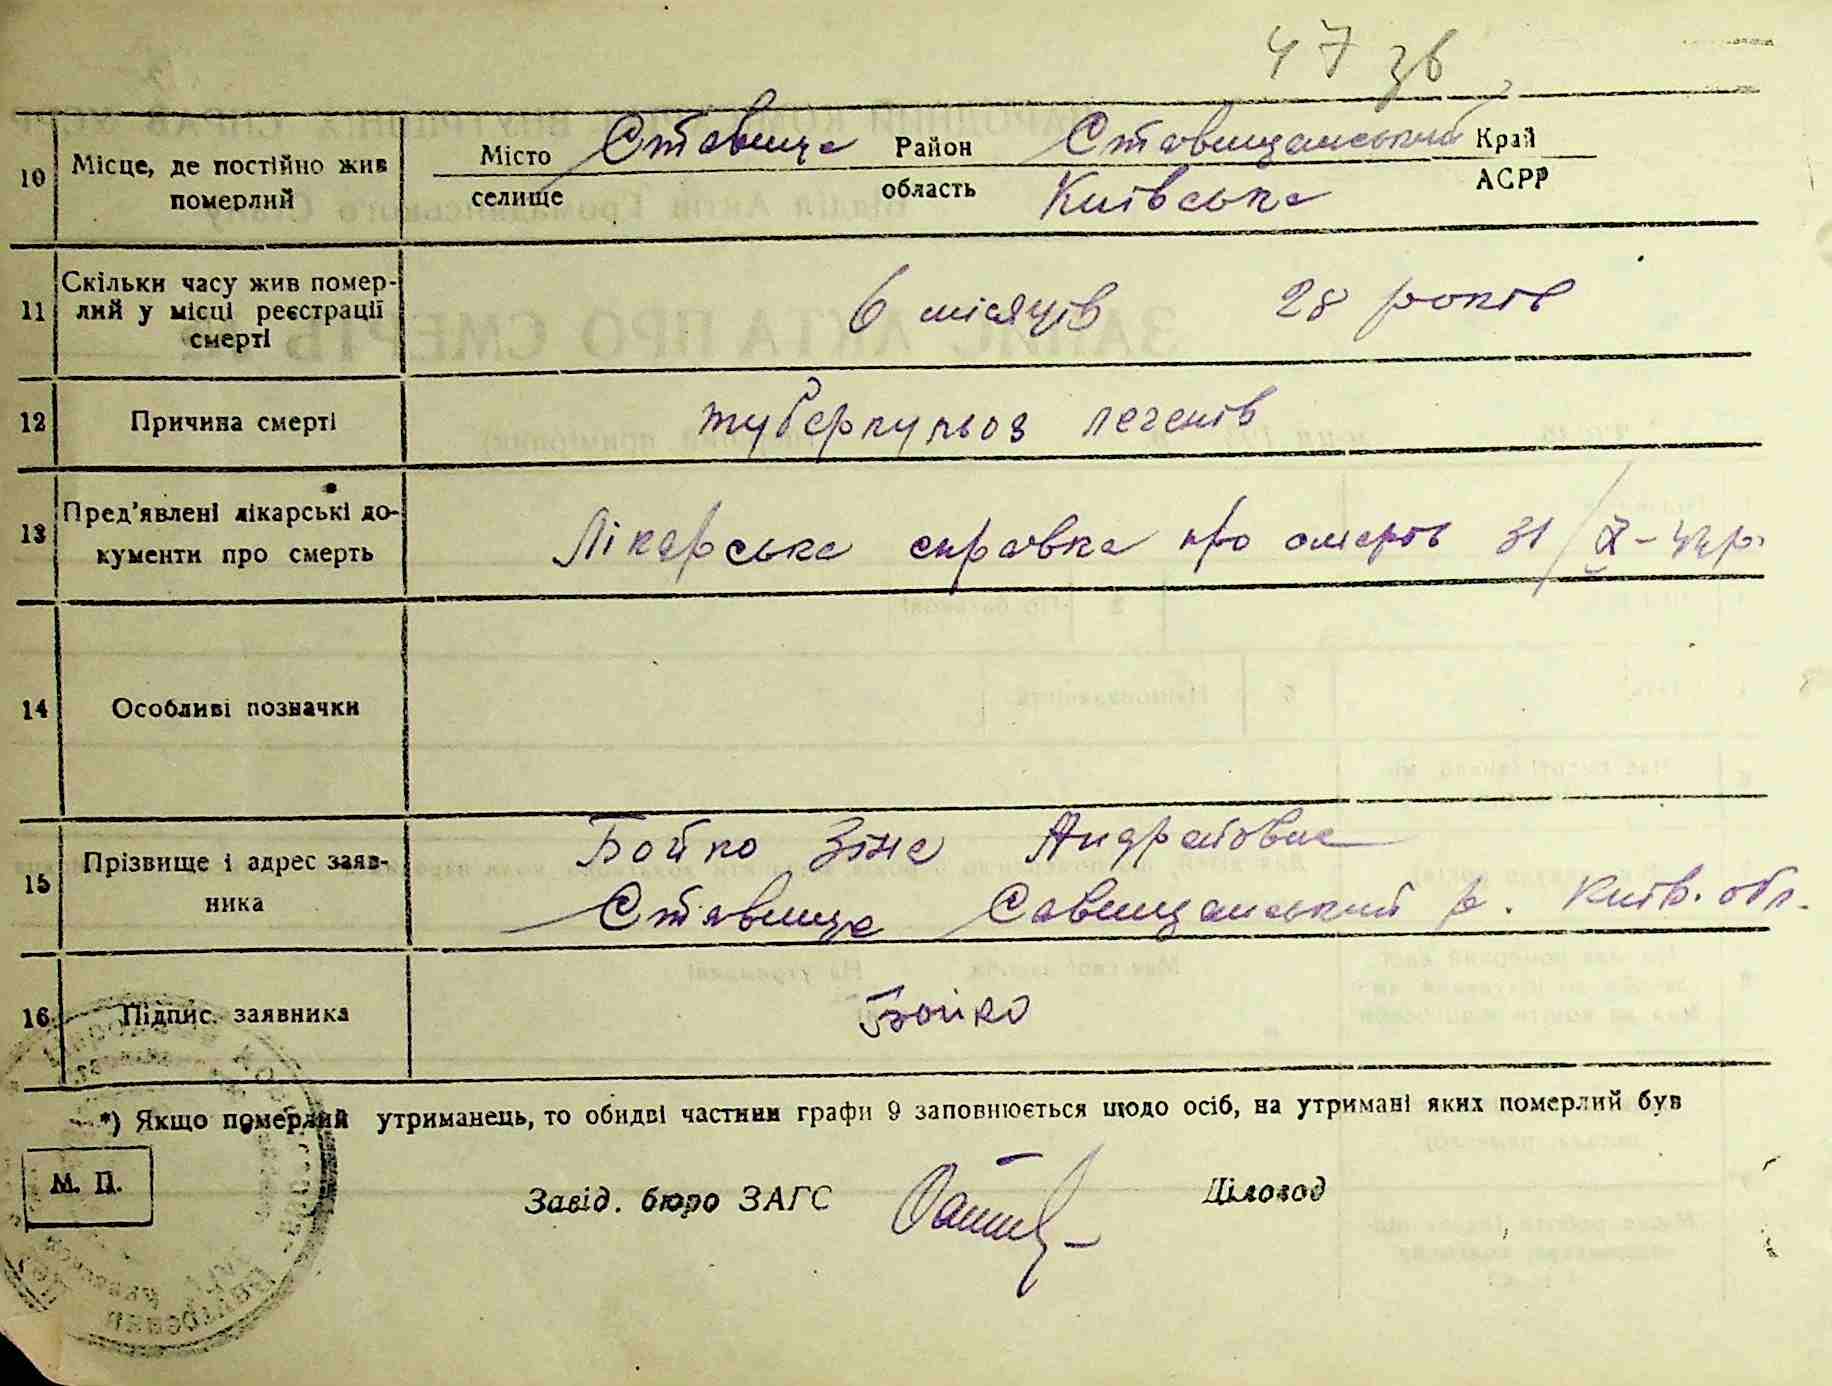 47 зв
10 Місце, де постійно жив померлий Місто селище Ставища Район Ставищанський Край
область Київська АСРР
11 Скільки часу жив помер-
лий у місці реєстрації
смерті 6 місяців 28 років
12 Причина смерті туберкульоз легенів
13 Пред'явлені лікарські до-
кументи про смерть Лікарська справка про смерть 31/X-
14 Особливі позначки
15 Прізвище і адрес заяв-
ника Бойко Зіна Андрайовна
Ставища Савищанський р. Київ. обл.
16 Підпис. заявника Бойко
*) Якщо померлий утриманець, то обидві частини графи 9 заповнюється щодо осіб, на утримані яких померлий був
М. П.
Завід. бюро ЗАГС Діловод